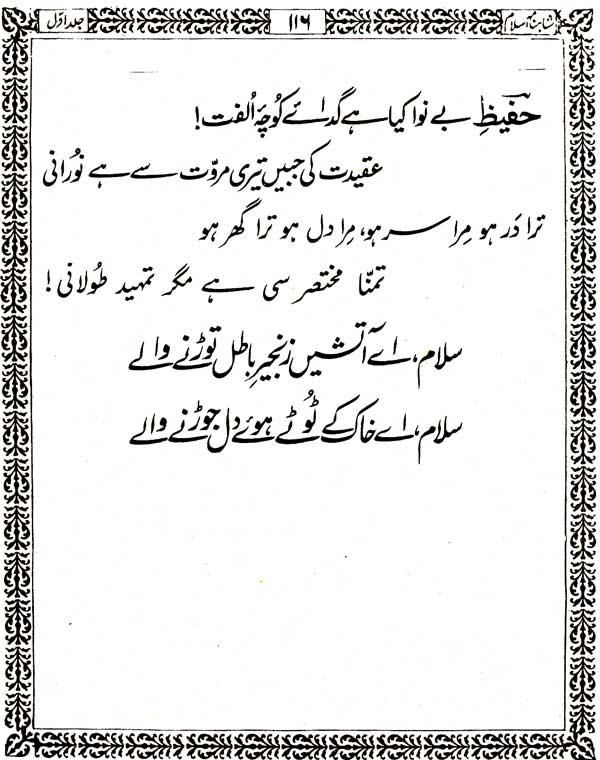 شاہنامہ اسلام ۱۱۶ جلد اوّل
حفیظِ بے نوا کیا ہے گدائے کوچۂ اُلفت!
عقیدت کی جبیں تیری مروّت سے ہے نُورانی
ترا دَر ہو مِرا سر ہو، مِرا دل ہو ترا گھر ہو
تمنّا مختصر سی ہے مگر تمہید طُولانی!
سلام، اے آتشیں زنجیرِ باطل توڑنے والے
سلام، اے خاک کے ٹُوٹے ہوئے دل جوڑنے والے